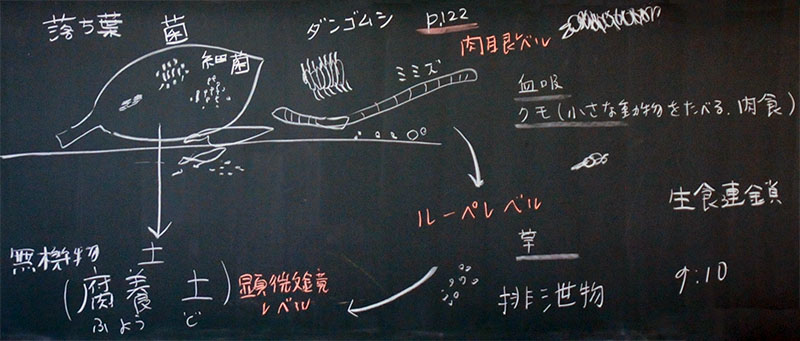 落ち葉
菌
細菌
ダンゴムシ
P.122
肉眼レベル
ミミズ
血吸
クモ(小さな動物をたべる、肉食)
ルーペレベル
草
排泄物
生食連鎖
9:10
無機物
土
(腐養土)
ふようど
顕微鏡
レベル